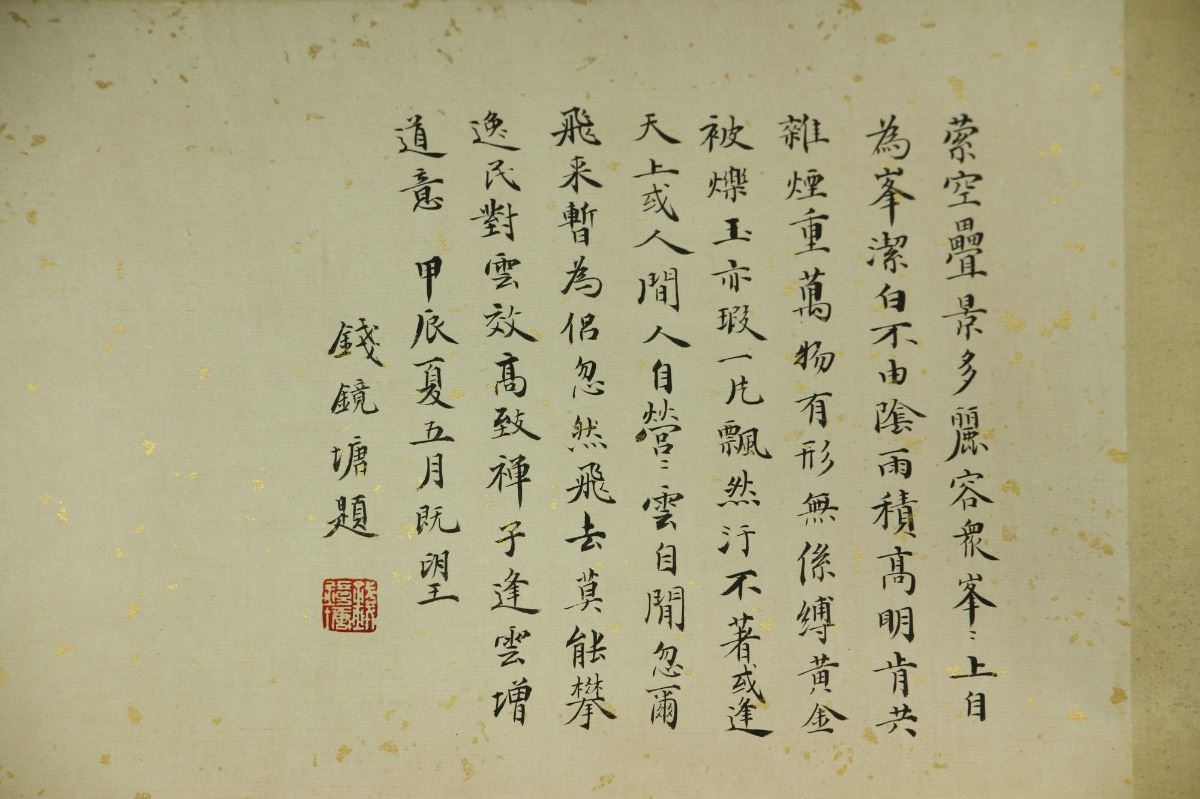 縈空疊景多麗容衆峯〻上自
為峯潔白不由陰雨積高明肯共
雜煙重萬物有形無係縛黃金
被爍玉亦瑕一片飄然汙不著或逢
天上或人間人自營〻雲自閒忽爾
飛来暫為侣忽然飛去莫能攀
逸民對雲效高致禅子逢雲增
道意 甲辰夏五月既望
錢鏡塘題
錢鏡塘